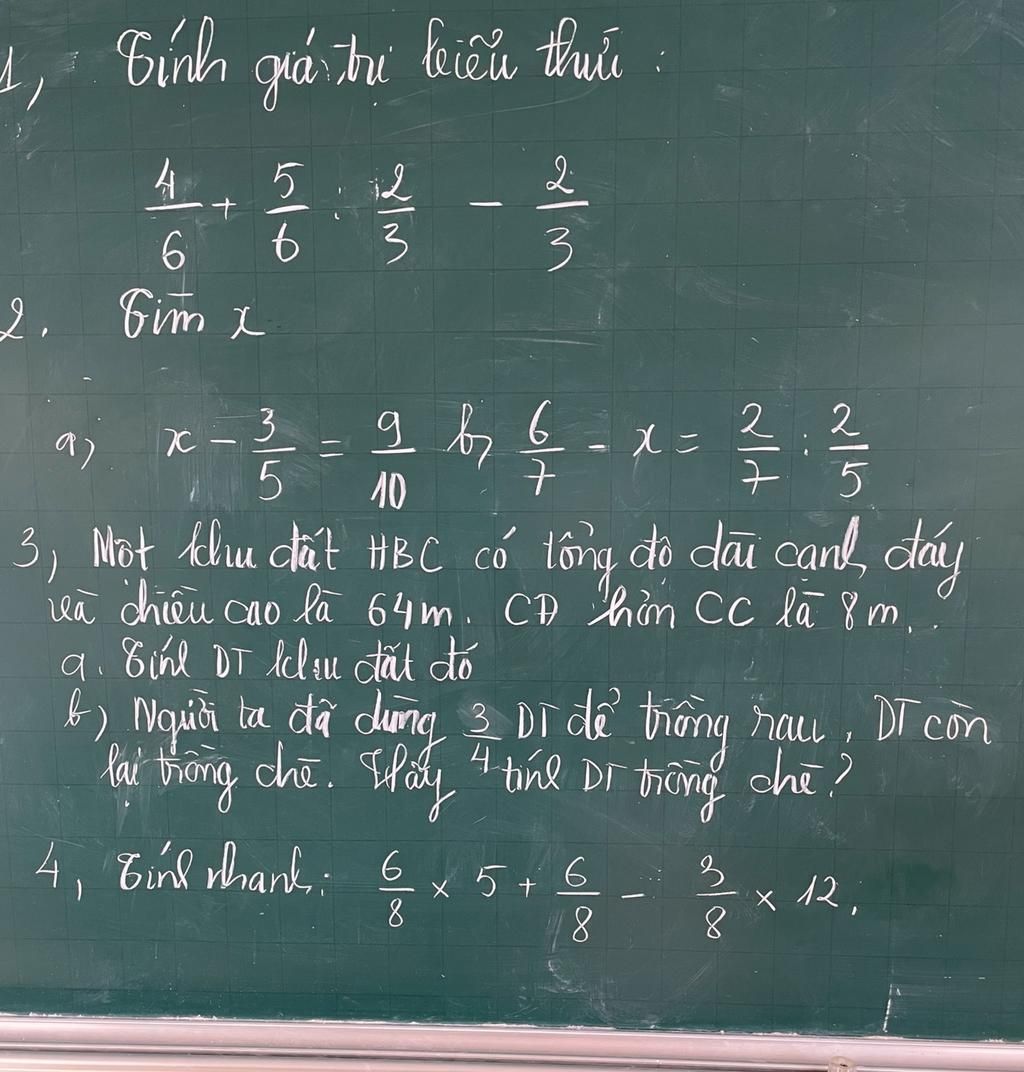 1, Tính giá trị biểu thức:
4/6 + 5/6 : 2/3 - 2/3
2. Tìm x
a) x - 3/5 = 9/10 b) 6/7 - x = 2/7 : 2/5
3, Một khu đất HBC có tổng độ dài cạnh đáy
và chiều cao là 64m. CĐ hơn CC là 8m.
a. Tính DT khu đất đó
b) Người ta đã dùng 3/4 DT để trồng rau, DT còn
lại trồng chè. Hãy tính DT trồng chè?
4, Tính nhanh: 6/8 × 5 + 6/8 - 3/8 × 12.